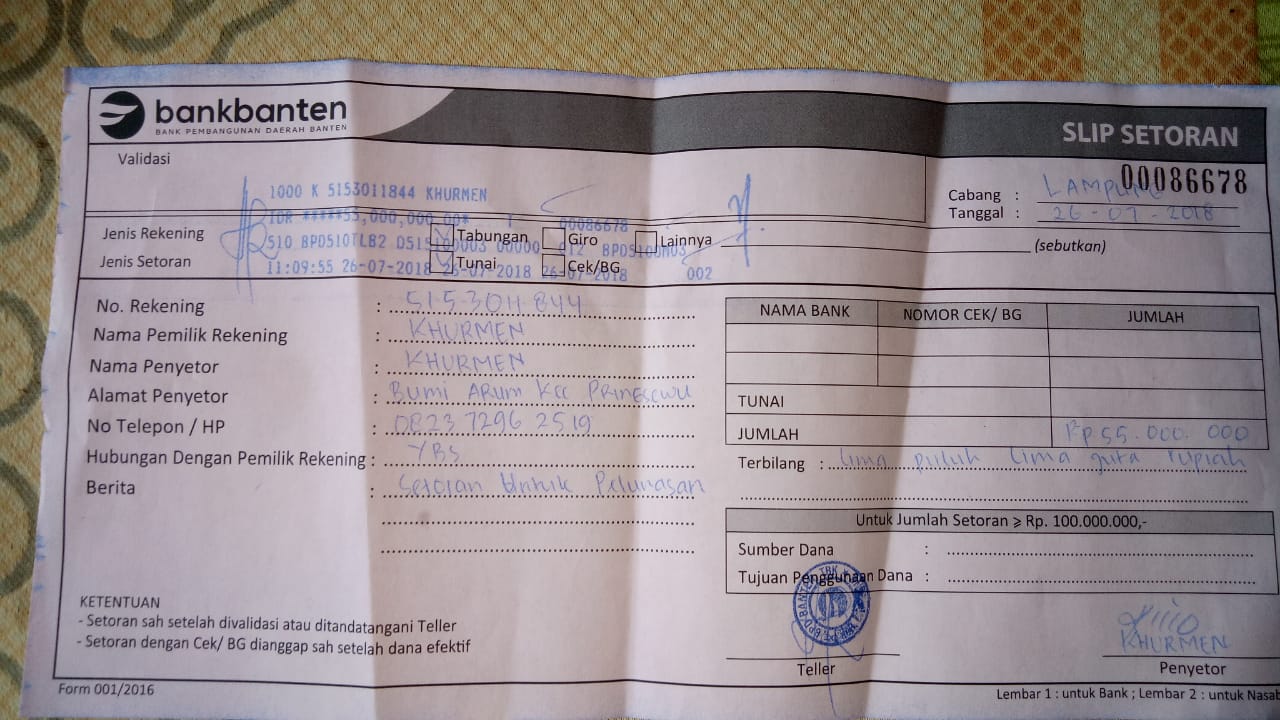 bankbanten
BANK PEMBANGUNAN DAERAH BANTEN
SLIP SETORAN
Validasi
00086678
1000 K 5153011844 KHURMEN
Cabang : LAMPUNG
IDR *****55,000,000.00* 1 00086678
Tanggal : 26-07-2018
Jenis Rekening Tabungan Giro Lainnya (sebutkan)
510 BPD510TLB2 00000 012
Jenis Setoran Tunai Cek/BG
11:09:55 26-07-2018 26-07-2018 26-07-2018 002
No. Rekening : 5153011844
Nama Pemilik Rekening : KHURMEN
Nama Penyetor : KHURMEN
Alamat Penyetor : BUMI ARUM KEC
No Telepon / HP : 0823 7296 2519
Hubungan Dengan Pemilik Rekening : YBS
Berita : Setoran Untuk Pelunasan
NAMA BANK NOMOR CEK/ BG JUMLAH
TUNAI
JUMLAH Rp 55.000.000
Terbilang : lima puluh lima juta rupiah
Untuk Jumlah Setoran ⩾ Rp. 100.000.000,-
Sumber Dana :
Tujuan Penggunaan Dana :
KETENTUAN
- Setoran sah setelah divalidasi atau ditandatangani Teller
- Setoran dengan Cek/ BG dianggap sah setelah dana efektif
KHURMEN
Teller
Penyetor
Form 001/2016
Lembar 1 : untuk Bank ; Lembar 2 : untuk Nasab